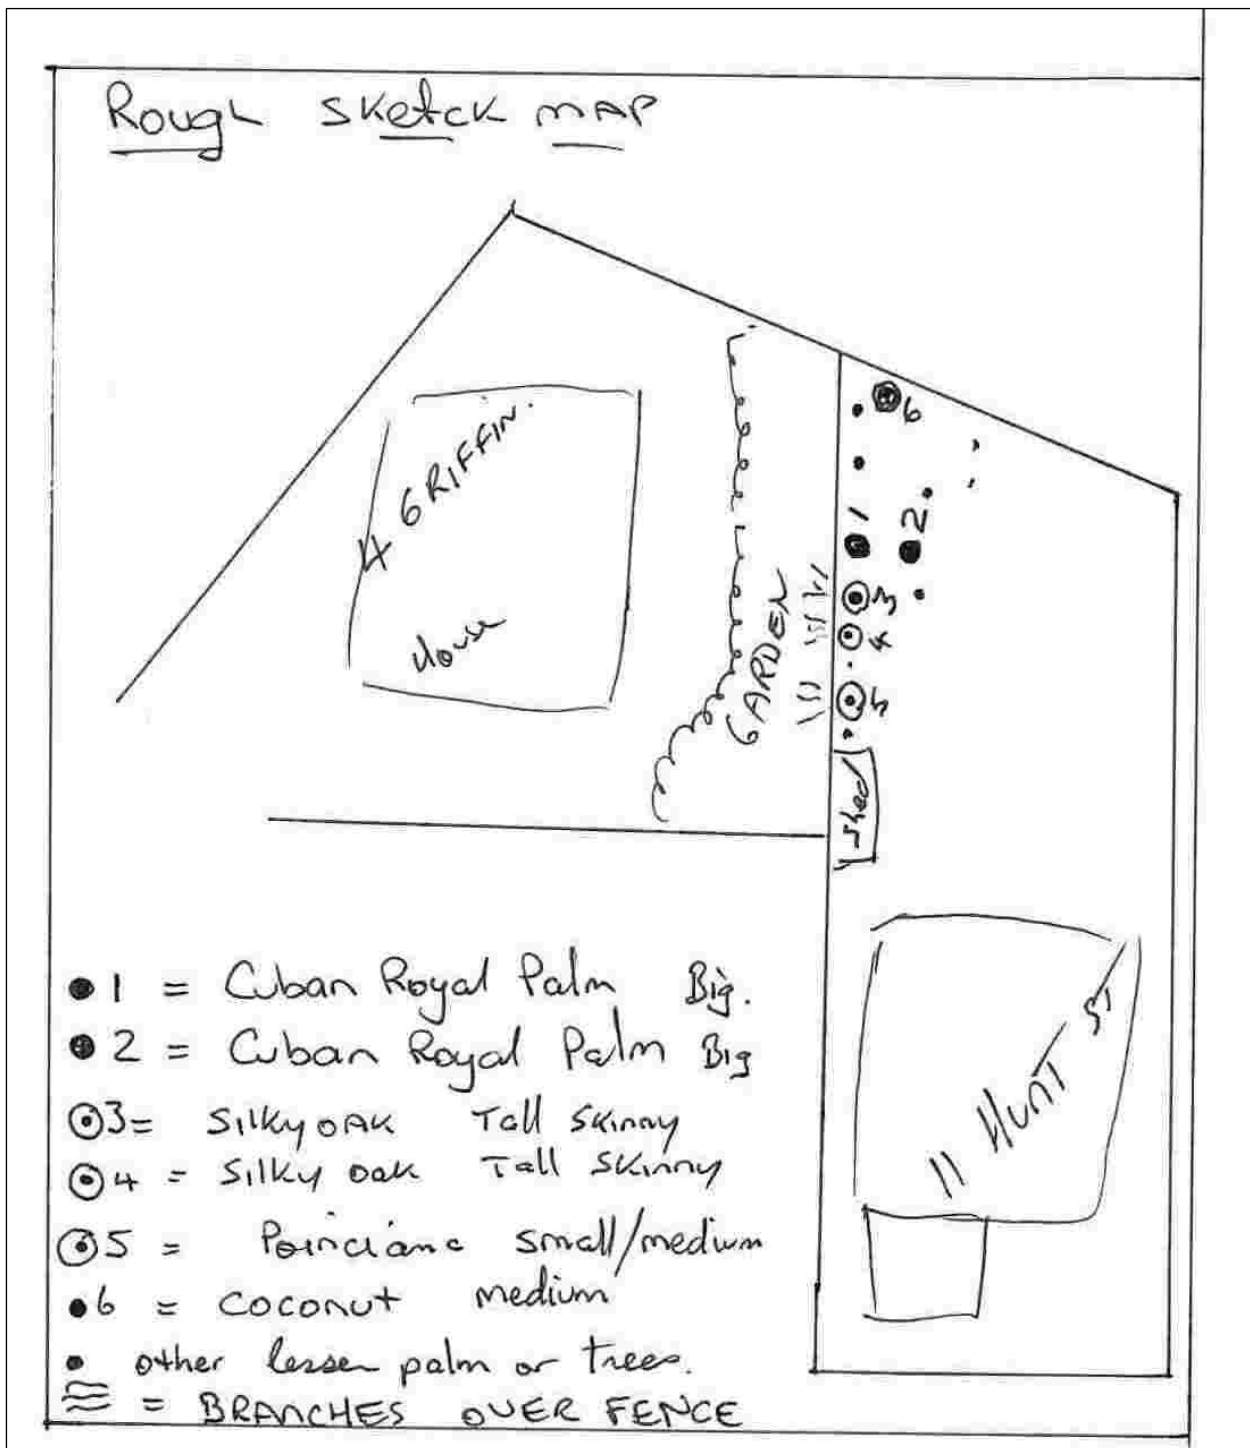 Rough Sketck MAP
6
4 GRIFFIN.
1
2
House
GARDEN
3
4
5
Shed
11 HUNT ST
1 = Cuban Royal Palm Big.
2 = Cuban Royal Palm Big
3 = Silky OAK Tall Skinny
4 = Silky Oak Tall Skinny
5 = Poinciana small/medium
6 = Coconut medium
other lesser palm or trees.
= BRANCHES OVER FENCE